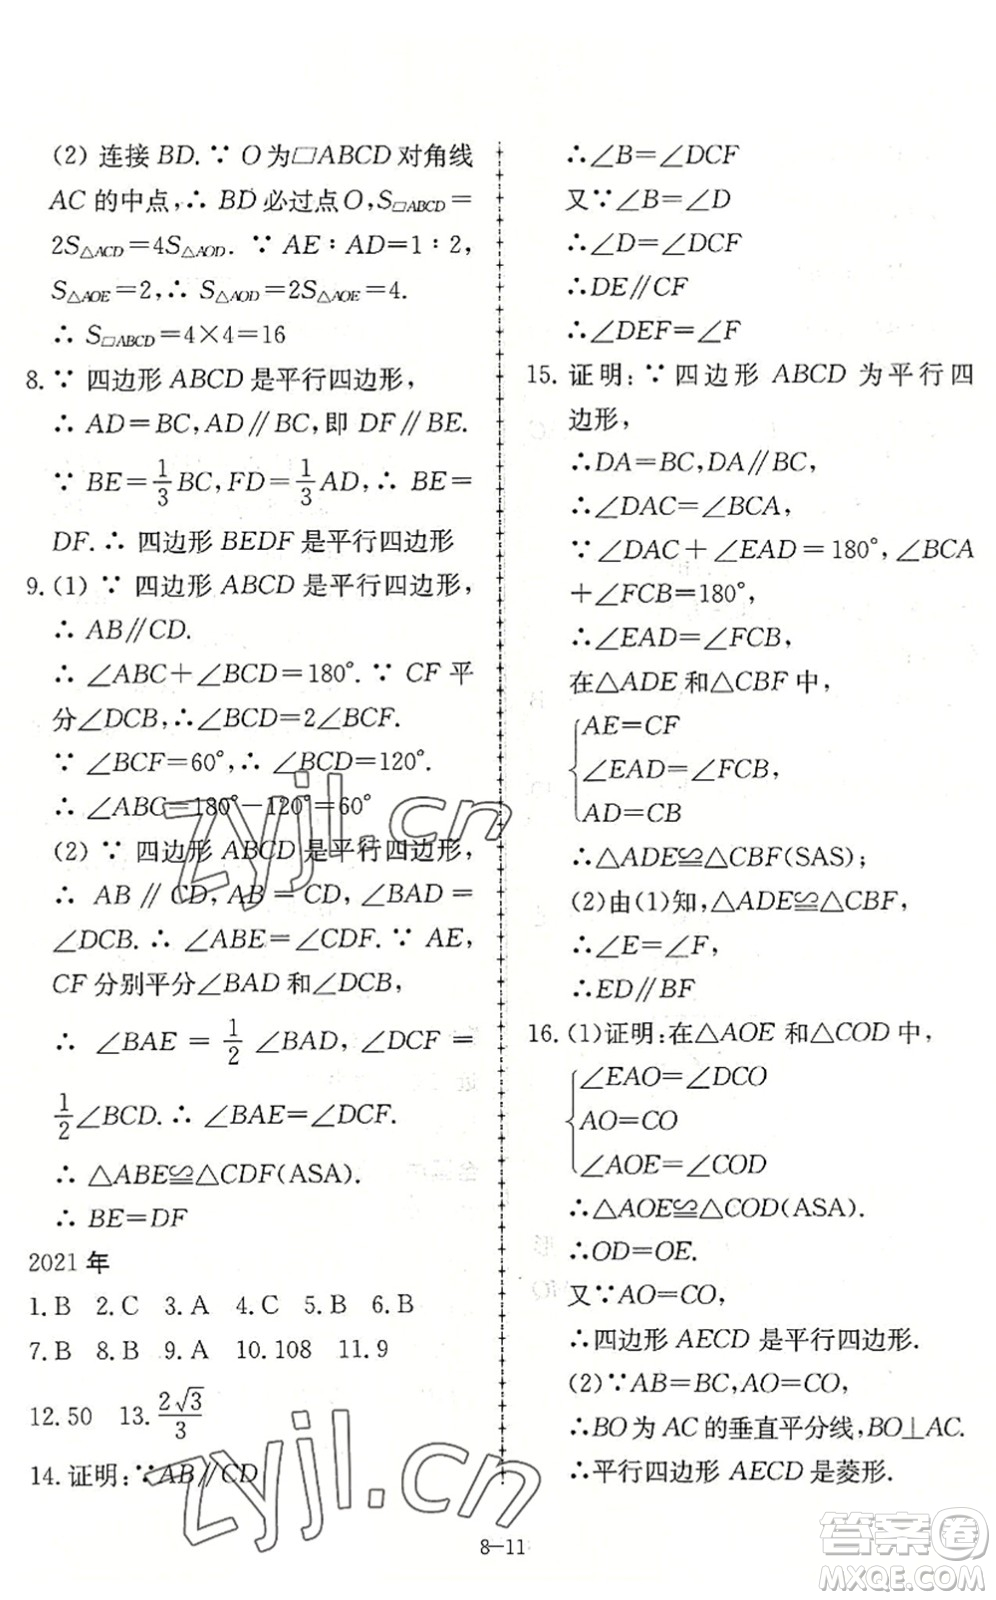 (2) 连接 BD.∵ O为□ABCD对角线
AC的中点,∴ BD必过点O,S□ABCD=
2S△ACD=4S△AOD. ∵ AE∶AD=1∶2,
S△AOE=2,∴ S△AOD=2S△AOE=4.
∴ S□ABCD=4×4=16
8. ∵ 四边形ABCD是平行四边形,
∴ AD=BC,AD∥BC,即 DF∥BE.
∵ BE=1/3BC,FD=1/3AD,∴ BE=
DF.∴ 四边形BEDF是平行四边形
9. (1) ∵ 四边形ABCD是平行四边形,
∴ AB∥CD.
∴ ∠ABC+∠BCD=180°.∵ CF平
分∠DCB,∴ ∠BCD=2∠BCF.
∵ ∠BCF=60°,∴ ∠BCD=120°.
∴ ∠ABC=180°-120°=60°
(2) ∵ 四边形ABCD是平行四边形,
∴ AB∥CD,AB=CD,∠ABE=
∠DCB.∴ ∠ABE=∠CDF.∵ AE,
CF分别平分∠BAD和∠DCB,
∴ ∠BAE=1/2∠BAD,∠DCF=
1/2∠BCD.∴ ∠BAE=∠DCF.
∴ △ABE≌△CDF(ASA).
∴ BE=DF
2021年
1.B 2.C 3.A 4.C 5.B 6.B
7.B 8.B 9.A 10.108 11.9
12.50 13.2√3/3
14.证明:∵AB∥CD
∴∠B=∠DCF
又∵∠B=∠D
∴∠D=∠DCF
∴DE∥CF
∴∠DEF=∠F
15. 证明:∵四边形 ABCD 为平行四
边形,
∴DA=BC,DA∥BC,
∴∠DAC=∠BCA,
∵∠DAC+∠EAD=180°,∠BCA
+∠FCB=180°,
∴∠EAD=∠FCB,
在△ADE和△CBF中,
AE=CF
∠EAD=∠FCB,
AD=CB
∴△ADE≌△CBF(SAS);
(2)由(1)知,△ADE≌△CBF,
∴∠E=∠F,
∴ED∥BF
16. (1)证明:在△AOE和△COD中,
∠EAO=∠DCO
AO=CO
∠AOE=∠COD
∴△AOE≌△COD(ASA).
∴OD=OE.
又∵AO=CO,
∴四边形AECD是平行四边形.
(2)∵AB=BC,AO=CO,
∴BO为AC的垂直平分线,BO⊥AC.
∴平行四边形AECD是菱形.
8-11
zyjl.cn
zyjl.cn
答案圈
MXQE.COM